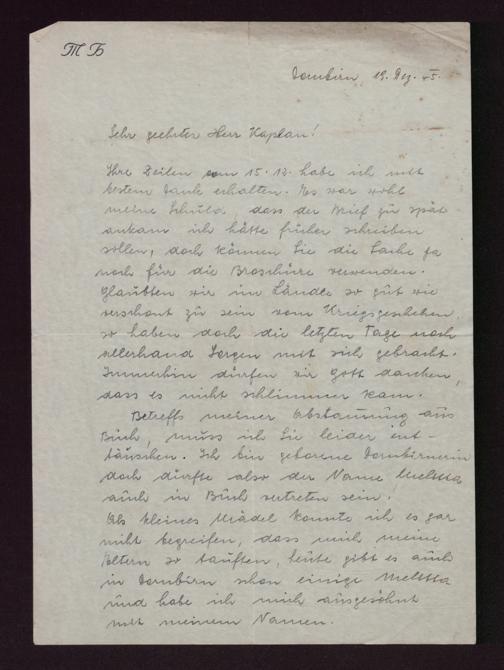 TB
Dornbirn, 19. Dez. 45.
Sehr geehrter Herr Kaplan!
Ihre Zeilen vom 15.12. habe ich mit
bestem Dank erhalten. Es war wohl
meine Schuld, dass der Brief zu spät
ankam ich hätte früher schreiben
sollen, doch können Sie die Sache ja
noch für die Broschüre verwenden.
Glaubten wir im Ländle so gut wie
verschont zu sein vom Kriegsgeschehen,
so haben doch die letzten Tage noch
allerhand Sorgen mit sich gebracht.
Immerhin dürfen wir Gott danken,
dass es nicht schlimmer kam.
Betreffs meiner Abstammung aus
Buch, muss ich Sie leider ent-
täuschen. Ich bin geborene Dornbirnerin
doch dürfte also der Name Melitta
auch in Buch vertreten sein.
Als kleines Mädel konnte ich es gar
nicht begreifen, dass mich meine
Eltern so tauften, heute gibt es auch
in Dornbirn schon einige Melitta
und habe ich mich ausgesöhnt
mit meinem Namen.